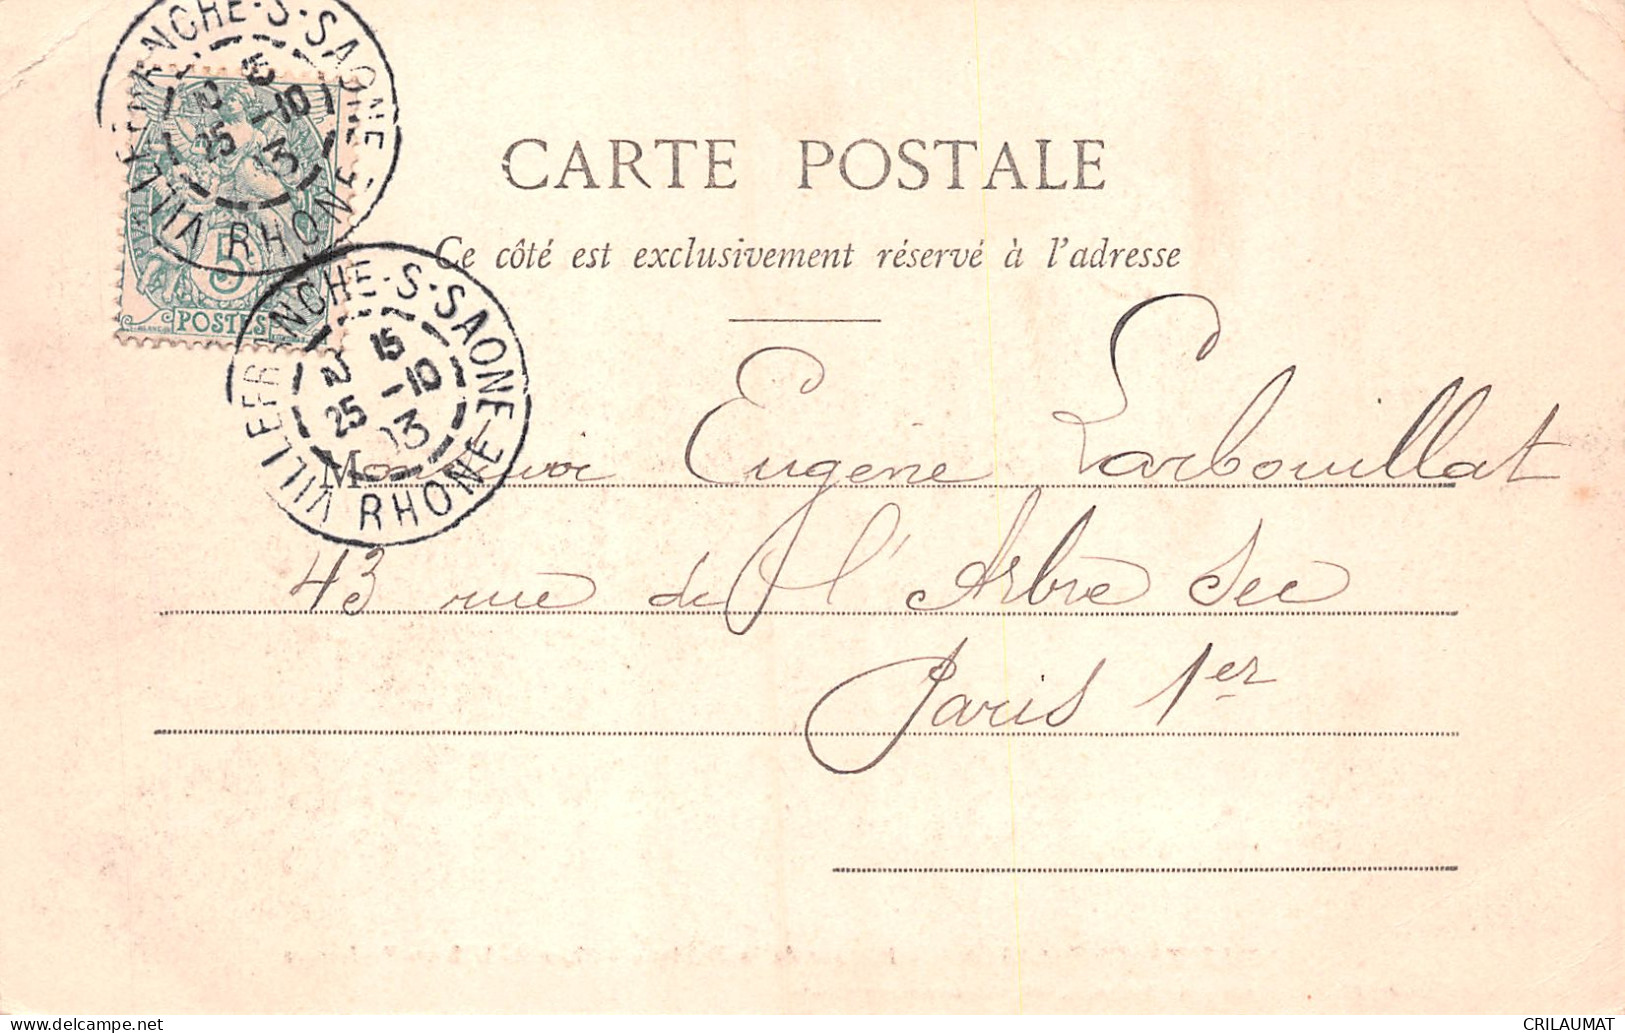 CARTE POSTALE
Ce côté est exclusivement réservé à l'adresse
5
POSTES
VILLEFRANCHE-S-SAONE RHONE
15
25 -10
VILLEFRANCHE-S-SAONE RHONE
2 15
25 -10
03
Monsieur Eugène Larbouillat
43 rue de l'Arbre Sec
Paris 1er
CRILAUMAT